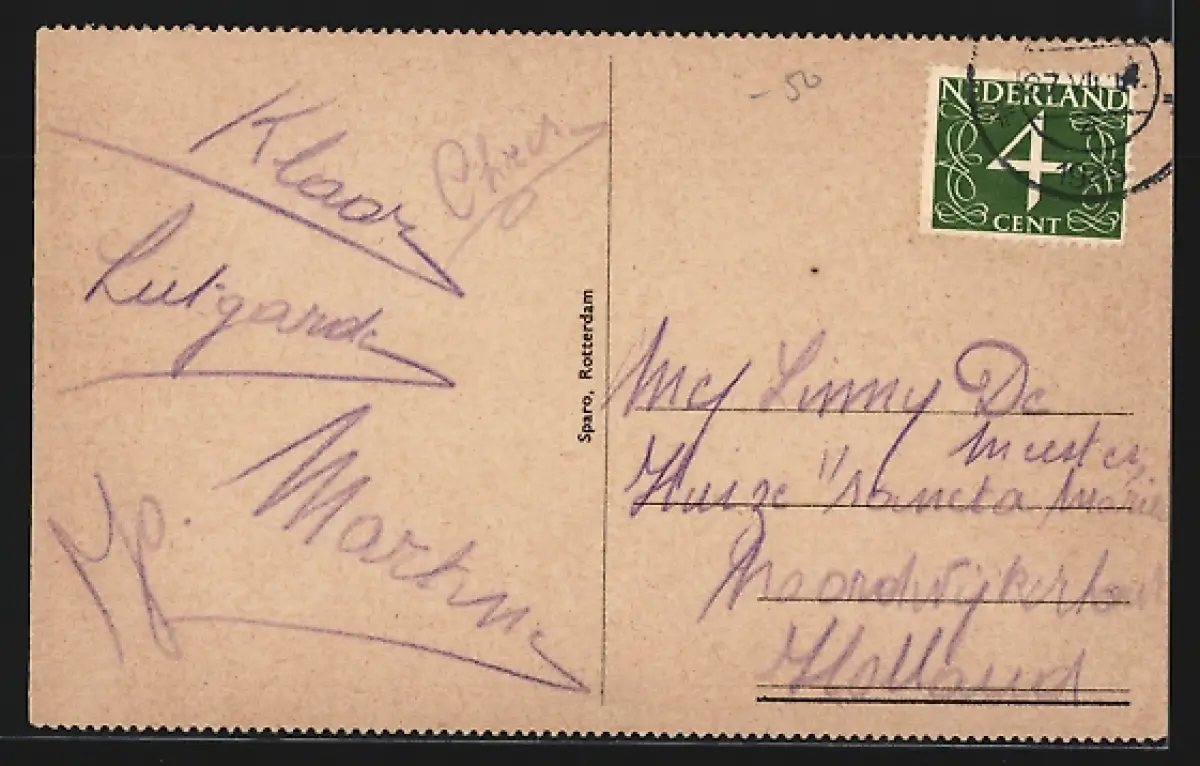 Klaar
Lutgarde
Martine
- 50
NEDERLAND
4
CENT
Sparo, Rotterdam
Mej Linny De
Meester
Huize "Sancta Maria
Noordwijkerhout
Holland